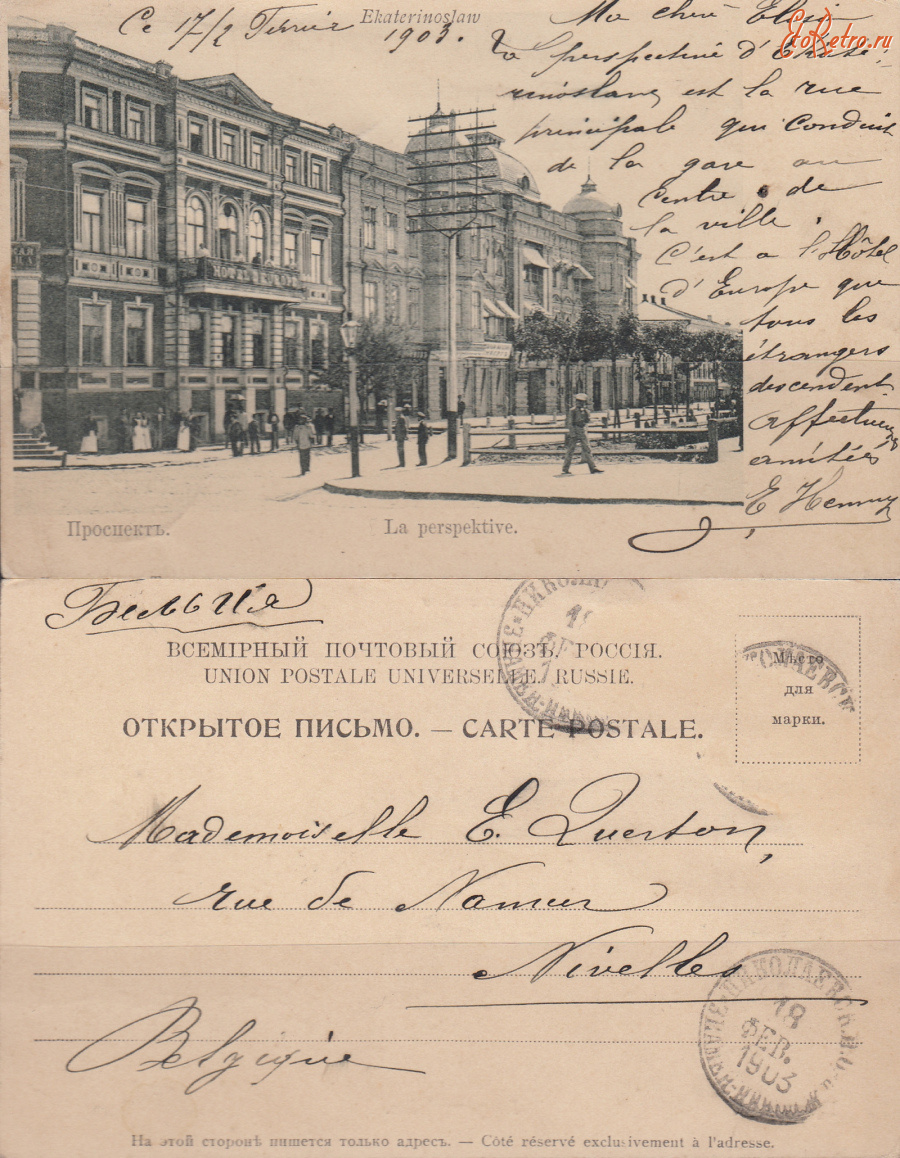 Ekaterinoslaw
EtoRetro.ru
Ce 17/2 Fevrier
1903.
Ma chère Elisa
La perspective d'Ekate-
rinoslaw, est la rue
principale qui conduit
de la gare au
centre de
la ville.
C'est a l'Hôtel
d'Europe que
tous les
étrangers
descendent.
Affectueuses
amitiés
E. Hennuy
Проспектъ.
La perspektive.
Бельгія
ВСЕМІРНЫЙ ПОЧТОВЫЙ СОЮЗЪ. РОССІЯ.
UNION POSTALE UNIVERSELLE. RUSSIE.
ОТКРЫТОЕ ПИСЬМО. — CARTE POSTALE.
Мѣсто
для
марки.
Mademoiselle E. Querton,
rue de Namur
Nivelles
Belgique
18
ФЕВ.
1903
На этой сторонѣ пишется только адресъ. — Côté réservé exclusivement à l'adresse.